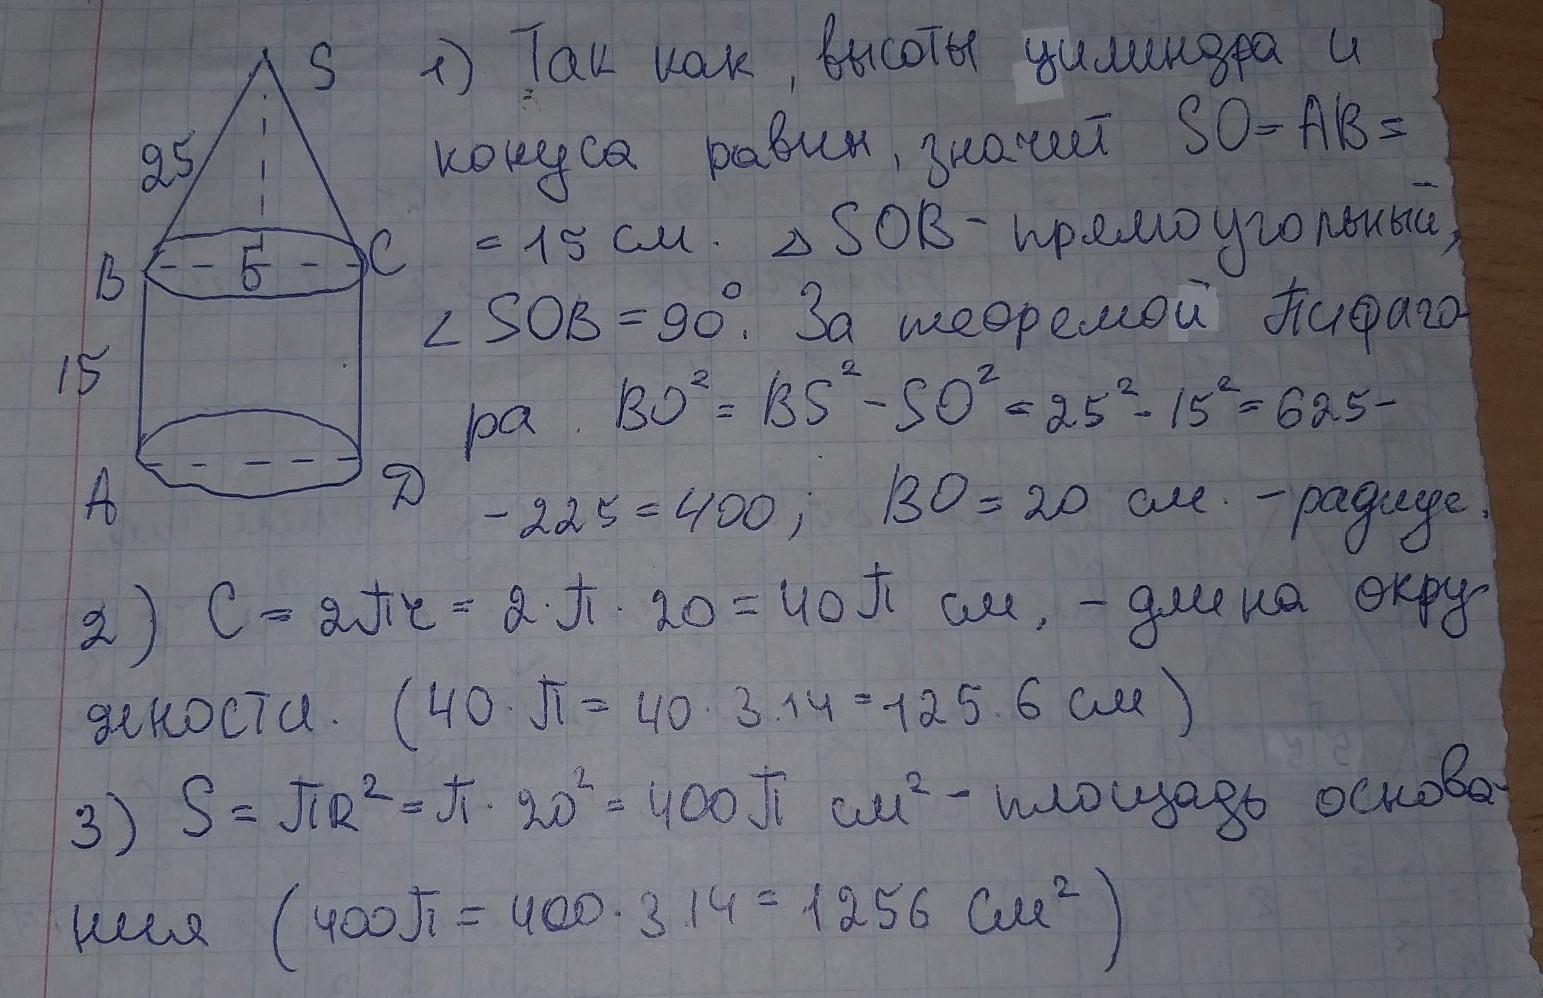 S
25
B
C
Б
15
A
D
1) Так как, высоты цилиндра и
конуса равин, значит SO = AB =
= 15 см. △ SOB - прямоугольный,
∠ SOB = 90°. За теоремой Пифаго-
ра. BO² = BS² - SO² = 25² - 15² = 625 -
- 225 = 400; BO = 20 см. - радиус.
2) C = 2Пr = 2·П·20 = 40П см, - длина окру-
жности. (40·П = 40·3.14 = 125.6 см)
3) S = ПR² = П·20² = 400П см² - площадь основа-
ния (400П = 400·3.14 = 1256 см²)